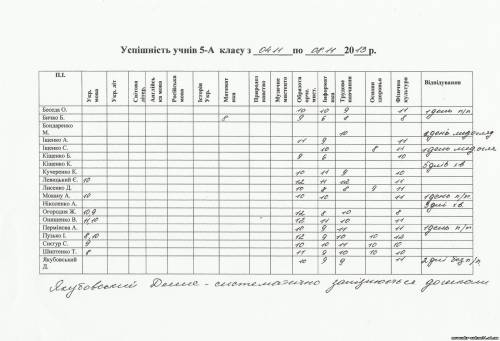 Успішність учнів 5-А класу з 04.11 по 08.11 2013 р.
П.І. Укр. мова Укр. літ Світова літер. Англійська мова Російська мова Історія Укр. Математика Природознавство Музичне мистецтво Образотворч. мист. Інформатика Трудове навчання Основи здоровья Фізична культура Відвідування
Беседа О. 10 10 9 11 1 день п/п
Бичко Б. 8 9 6 8 8
Бондаренко М. 10 1 день медогляд
Івненко А. 11 9 11
Івненко С. 10 8 11 1 день медогляд
Кіщенко Б. 9 6 10
Кіщенко К. 5 днів хв.
Кучеренко К. 10 11 9 10
Левицький Є. 10 12 11 12 11
Лисенко Д. 10 8 8 9 11
Мокану А. 10 10 11 1 день п/п
Ніколенко А. 3 дні хв.
Огородня Ж. 10,9 12 8 10 8
Онищенко В. 11,10 12 11 10 11
Пермінова А. 10 9 11 11 1 день п/п
Пузько І. 8,10 12 9 10 10 12
Снєгур С. 9 10 10 11 10 10
Шевченко Т. 8 11 9 10 10 10
Якубовський Д. 10 9 9 11 2 дні без п/п
Якубовский Денис - систематично запізнюється